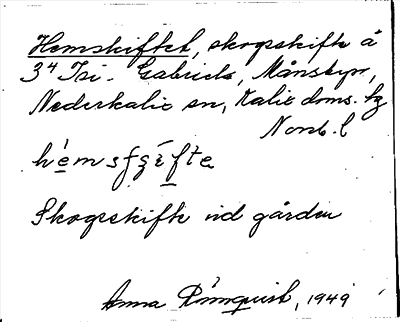 Hemskiftet, skogsskifte å
3⁴ Isi- Gabriels, Månsbyn,
Nederkalix sn, Kalix doms. hg
Norrb. l
hèmsʃʒífte
Skogsskifte vid gården
Anna Rönnquist, 1949